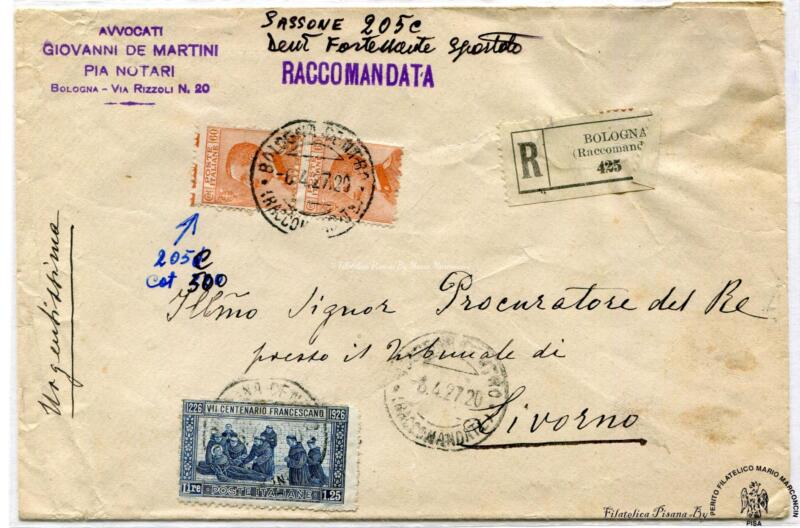 AVVOCATI
GIOVANNI DE MARTINI
PIA NOTARI
BOLOGNA - VIA RIZZOLI N. 20
SASSONE 205c
Dent Fortemente Spostato
RACCOMANDATA
R
BOLOGNA
(Raccomand
425
60
POSTE ITALIANE
BOLOGNA CENTRO
-6.4.27.20
(RACCOMANDATE)
205c
cat 500
Urgentissima
Filatelica Pisana By Mario Marconcini
Illmo Signor Procuratore del Re
presso il Tribunale di
Livorno
BOLOGNA CENTRO
-6.4.27.20
(RACCOMANDATE)
1226 VII CENTENARIO FRANCESCANO 1926
lire POSTE ITALIANE 1.25
Filatelica Pisana By
PERITO FILATELICO MARIO MARCONCINI
PISA